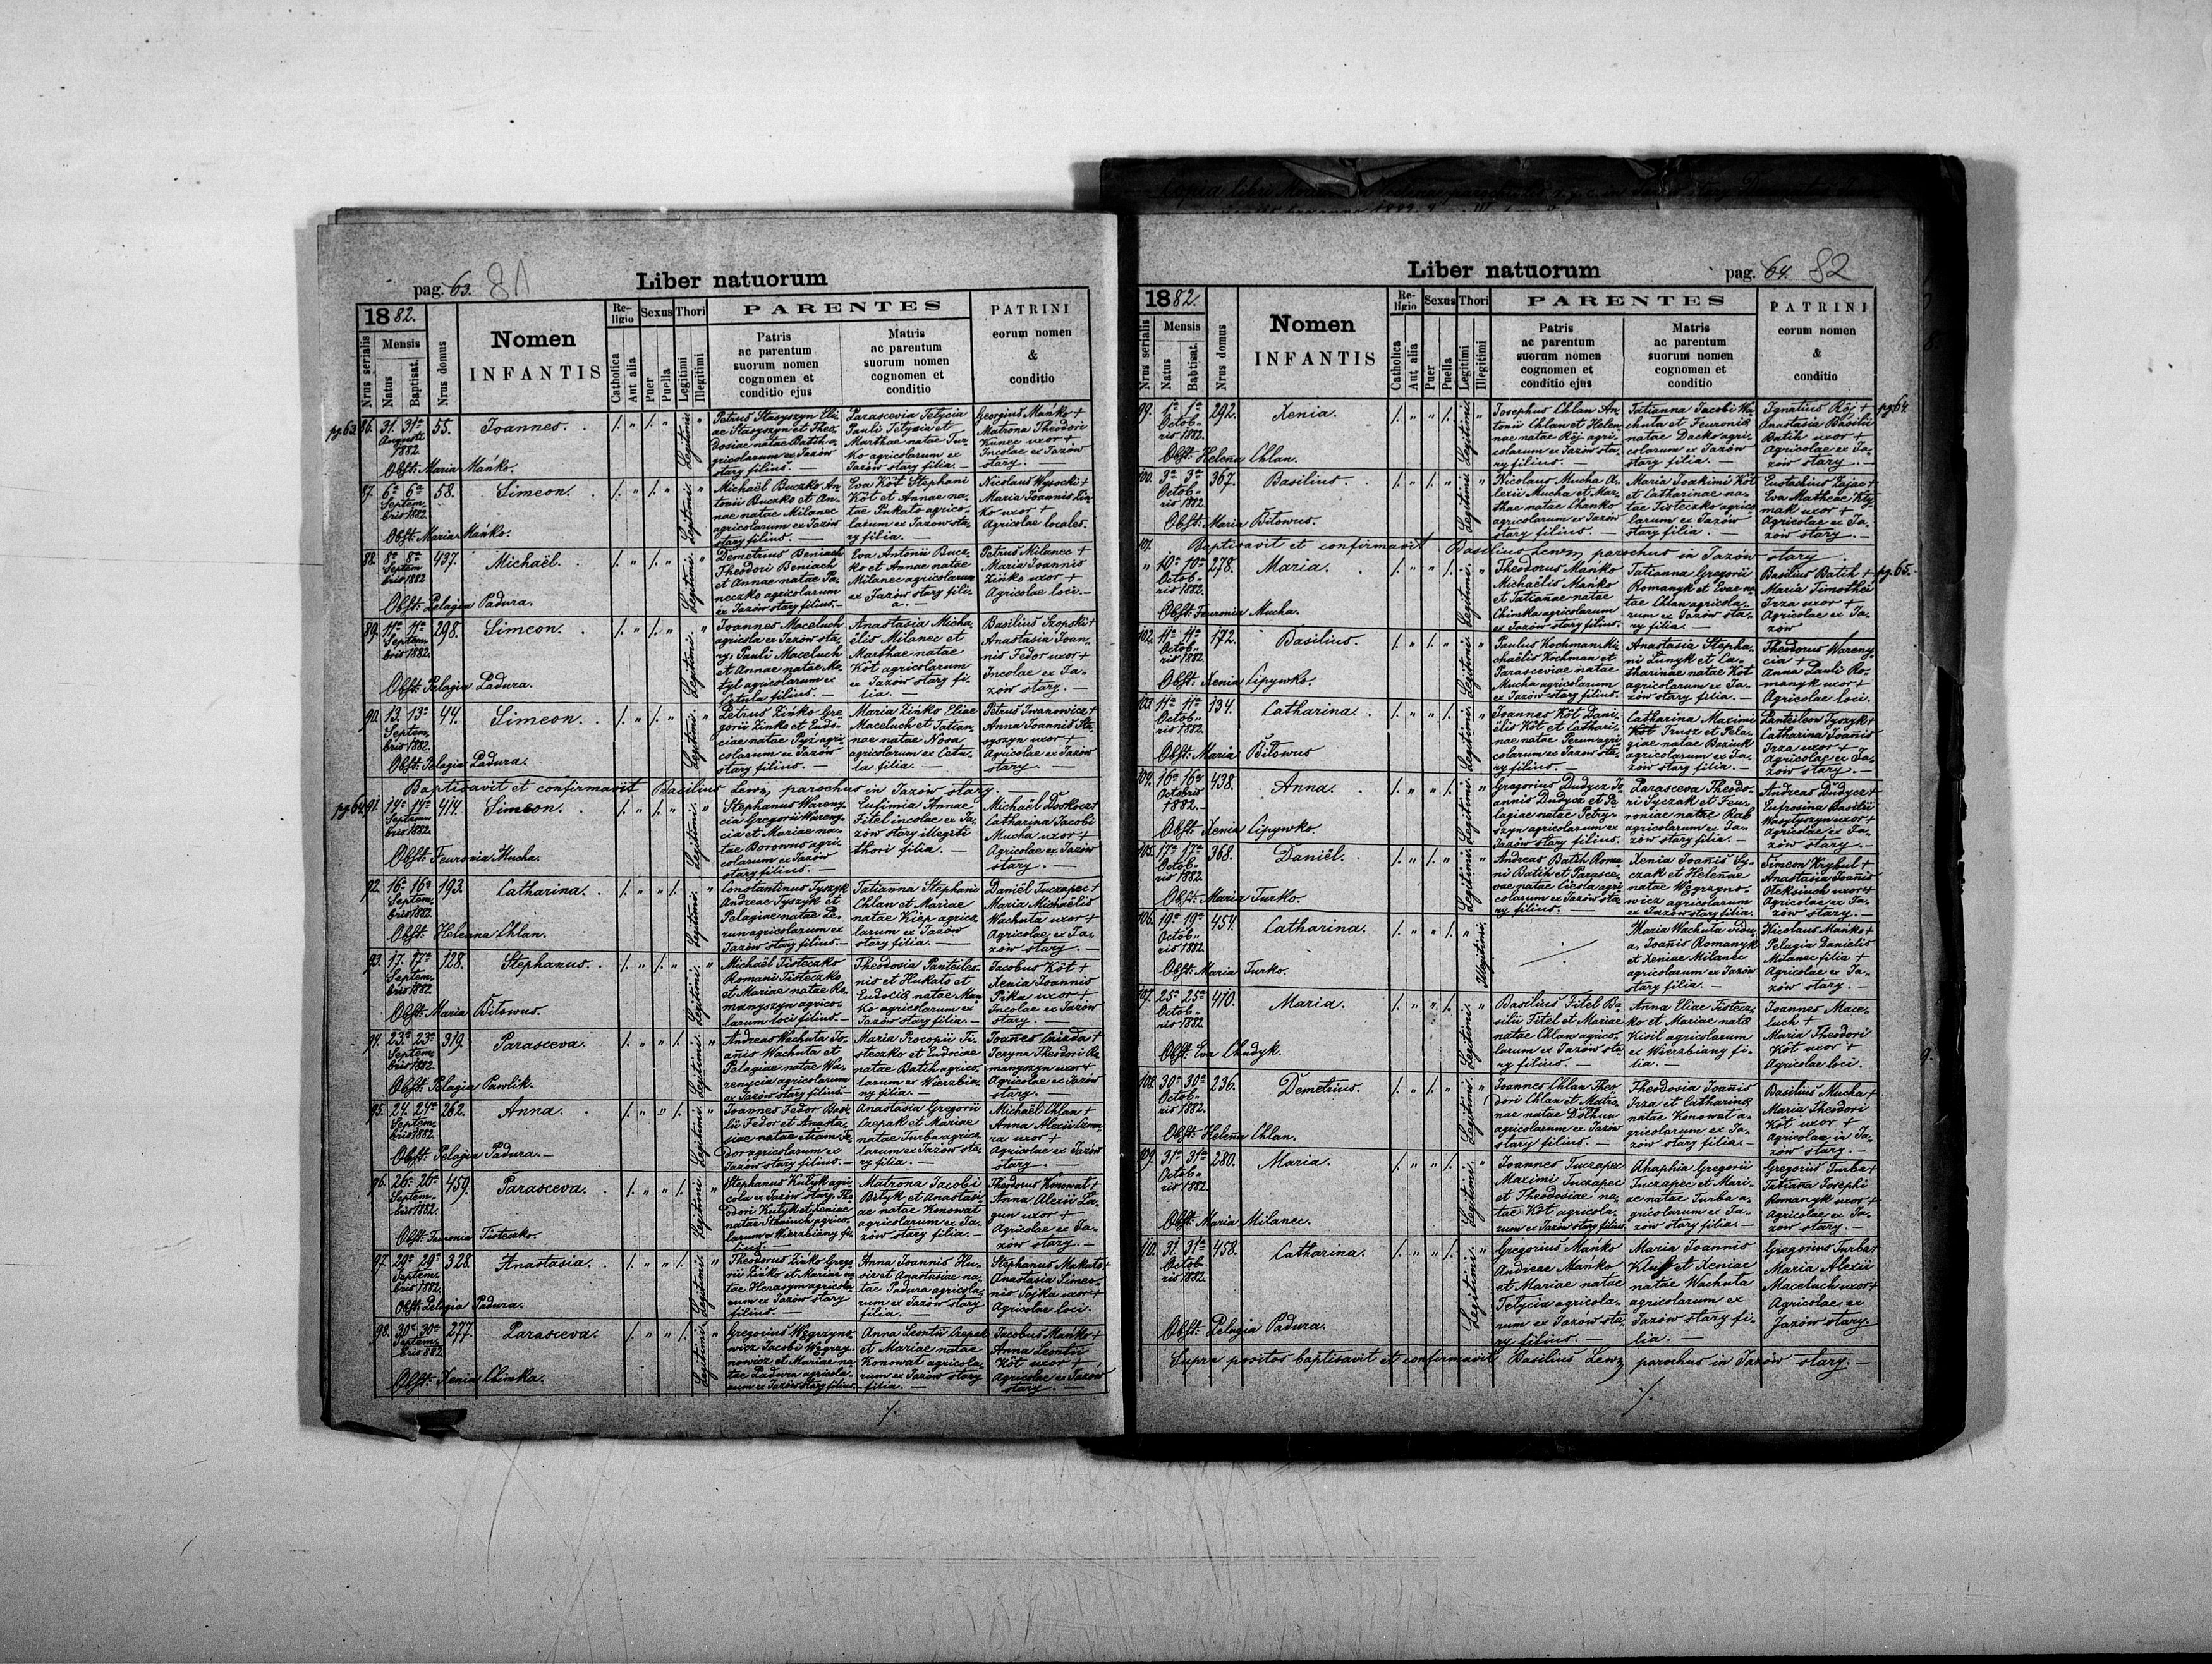 pag. 63. 81
Liber natuorum
1882.
Nrus serialis
Mensis
Natus
Baptisat.
Nrus domus
Nomen
INFANTIS
Religio
Catholica
Aut alia
Sexus
Puer
Puella
Thori
Legitimi
Illegitimi
PARENTES
Patris
ac parentum
suorum nomen
cognomen et
conditio ejus
Matris
ac parentum
suorum nomen
cognomen et
conditio
PATRINI
eorum nomen
&
conditio
86. 31. 31a Augusti 1882 55. Joannes.
Legitimi.
Petrus Stasyszyn Eli-
ae Stasyszyn et Theo-
dosiae natae Batih a-
gricolarum ex Jazów
stary filius. —
Parascevia Tetycia
Pauli Tetycia et
Marthae natae Tur-
ko agricolarum ex
Jazów stary filia. —
Georgius Mańko +
Matrona Theodori
Kunec uxor +
Incolae ex Jazów
stary. —
Obst: Maria Mańko.
87. 6a 6a Septembris 1882. 58. Simeon.
Legitimi.
Michaël Buczko An-
tonii Buczko et An-
nae natae Milanec
agricolarum ex Jazów
stary filius. —
Eva Kót Stephani
Kót et Annae na-
tae Pukało agrico-
larum ex Jazow sta-
ry filia. —
Nicolaus Wysocki +
Maria Joannis Ziń-
ko uxor +
Agricolae locales.
Obst: Maria Mańko.
88. 8a 8a Septembris 1882 437. Michaël.
Legitimi.
Demetrius Beniach
Theodori Beniach
et Annae natae Pa-
neczko agricolarum
ex Jazów stary filius. —
Eva Antonii Bucz-
ko et Annae natae
Milanec agricolarum
ex Jazów stary fili-
a. —
Petrus Milanec +
Maria Joannis
Zińko uxor +
Agricolae loci. —
Obst: Pelagia Padura.
89. 11a 11a Septembris 1882. 298. Simeon.
Legitimi.
Joannes Maceluch
agricola ex Jazów sta-
ry, Pauli Maceluch
et Annae natae Mo-
tyl agricolarum ex
Cetula filius. —
Anastasia Micha-
ëlis Milanec et
Marthae natae
Kót agricolarum
ex Jazów stary fi-
lia. —
Basilius Szopski +
Anastasia Joan-
nis Fedor uxor +
Incolae ex Ja-
zów stary. —
Obst: Pelagia Padura.
90. 13. 13a Septembris 1882. 44. Simeon.
Legitimi.
Petrus Zińko Gre-
gorii Zinko et Eudo-
ciae natae Pyż agri-
colarum ex Jazów
stary filius. —
Maria Zińko Eliae
Maceluch et Tatian-
nae natae Nosa
agricolarum ex Cetu-
la filia. —
Petrus Iwanowicz +
Anna Joannis Sta-
syszyn uxor +
Agricolae ex Jazów
stary. —
Obst: Pelagia Padura.
Baptisavit et confirmavit Basilius Lewz, parochus in Jazów stary.
91. 14a 14a Septembris 1882. 414. Simeon.
Legitimi.
Stephanus Wareny-
cia Gregorii Wareny-
cia et Mariae na-
tae Borowus agri-
colarum ex Jazów
stary filius. —
Eufimia Annae
Fitel incolae ex Ja-
zów stary illegiti
thori filia. —
Michaël Doskocz +
Catharina Jacobi
Mucha uxor +
Agricolae ex Jazów
stary. —
Obst: Feuronia Mucha.
92. 16a 16a Septembris 1882. 193. Catharina.
Legitimi.
Constantinus Tyszyk
Andreae Tyszyk et
Pelagiae natae Pe-
run agricolarum ex
Jazów stary filius. —
Tatianna Stephani
Chlan et Mariae
natae Kiep agrico-
larum ex Jazów
stary filia. —
Daniël Tuczapec +
Maria Michaëlis
Wachuta uxor +
Agricolae ex Ja-
zów stary. —
Obst: Helenna Chlan.
93. 17. 17a Septembris 1882. 128. Stephanus.
Legitimi.
Michaël Tisteczko
Romani Tisteczko
et Mariae natae Ro-
manyszyn agrico-
larum loci filius. —
Theodosia Panteile-
nis et Hukato et
Eudociae natae Man-
ko agricolarum ex
Jazów stary filia. —
Jacobus Kót +
Xenia Joannis
Pika uxor +
Incolae ex Jazów
stary. —
Obst: Maria Bilowus.
94. 23a 23a Septembris 1882. 319. Parasceva.
Legitimi.
Andreas Wachuta Jo-
anis Wachuta et
Pelagiae natae Wa-
renycia agricolarum
ex Jazów stary filius. —
Maria Procopii Ti-
steczko et Eudociae
natae Batih agrico-
larum ex Wierzbia-
ny filia. —
Agricolae ex Jazów
stary. —
Obst: Pelagia Pawlik.
95. 24. 24a Septembris 1882. 262. Anna.
Legitimi.
Joannes Fedor Basi-
lii Fedor et Anasta-
siae natae etiam Fe-
dor agricolarum ex
Jazów stary filius. —
Anastasia Gregorii
Czepak et Mariae
natae Turba agrico-
larum ex Jazów sta-
ry filia. —
Michaël Chlan +
Anna Alexii
uxor +
Agricolae ex Jazów
stary. —
Obst: Pelagia Padura. —
96. 26a 26a Septembris 1882. 459. Parasceva.
Legitimi.
Stephanus Kulyk agri-
cola ex Jazów stary, The-
odori Kulyk et Xeniae
natae agrico-
larum ex Wierzbiany fi-
lius. —
Matrona Jacobi
Bilyk et Anastasi-
ae natae Konowat
agricolarum ex Ja-
zów stary filia. —
Theodorus Konowat +
Anna Alexii La-
gun uxor +
Agricolae ex Ja-
zów stary. —
Obst: Feuronia Tisteczko.
97. 29a 29a Septembris 1882. 328. Anastasia.
Legitimi.
Theodorus Zińko Grego-
rii Zińko et Mariae na-
tae Herasyn agricola-
rum ex Jazów stary
filius. —
Anna Joannis Hu-
sir et Anastasiae na-
tae Padura agricola-
rum ex Jazów stary
filia. —
Stephanus Mokato +
Anastasia Simeo-
nis Sojka uxor +
Agricolae loci.
Obst: Pelagia Padura.
98. 30a 30a Septembris 882. 277. Parasceva.
Legitimi.
Gregorius Węgrzyno-
wicz Jacobi Węgrzy-
nowicz et Mariae na-
tae Padura agricola-
rum ex Jazów stary filius. —
Anna Leontii Czepak
et Mariae natae
Konowat agricola-
rum ex Jazów stary
filia. —
Jacobus Mańko +
Anna Leontii
Kót uxor +
Agricolae ex Jazów
stary. —
Obst: Xenia Chimka.
Liber natuorum
pag. 64. 82
1882.
Nrus serialis
Mensis
Natus
Babtisat.
Nrus domus
Nomen
INFANTIS
Religio
Catholica
Aut alia
Sexus
Puer
Puella
Thori
Legitimi
Illegitimi
PARENTES
Patris
ac parentum
suorum nomen
cognomen et
conditio ejus
Matris
ac parentum
suorum nomen
cognomen et
conditio
PATRINI
eorum nomen
&
conditio
99. 1a 1a Octobris 1882. 292. Xenia.
Legitimi.
Josephus Chlan An-
tonii Chlan et Helen-
nae natae Rój agri-
colarum ex Jazów sta-
ry filius. —
Tatianna Jacobi Wa-
chuta et Feuroniae
natae Dacko agri-
colarum ex Jazów
stary filia. —
Ignatius Rój +
Anastasia Basilii
Batih uxor +
Agricolae ex Ja-
zów stary. —
pg 64.
Obst: Helena Chlan.
100. 3a 3a Octobris 1882. 367. Basilius.
Legitimi.
Nicolaus Mucha A-
lexii Mucha et Mar-
thae natae Chanko
agricolarum ex Jazów
stary filius. —
Maria Joakimi Kót
et Catharinae na-
tae Tisteczko agrico-
larum ex Jazów
stary filia. —
Eustachius Zając +
Eva Matheae Kly-
mak uxor +
Agricolae ex Ja-
zów stary. —
Obst: Maria Bilowus.
101. Baptisavit et confirmavit Basilius Lewz, parochus in Jazów stary.
10a 10a Octobris 1882. 278. Maria.
Legitimi.
Theodorus Mańko
Michaëlis Mańko
et Tatianae natae
Chimka agricolarum
ex Jazów stary filius.
Tatianna Gregorii
Romanyk et Evae na-
tae Chlan agricola-
rum ex Jazów sta-
ry filia.
Basilius Batih +
Maria Timothei
Irza uxor +
Agricolae ex Ja-
zów
pg. 65.
Obst: Feuronia Mucha.
102. 11a 11a Octobris 1882. 172. Basilius.
Legitimi.
Paulus Kochman Mi-
chaëlis Kochman et
Parasceviae natae
Mucha agricolarum
ex Jazów stary filius.
Anastasia Stepha-
ni Lunyk et Ca-
tharinae natae Kót
agricolarum ex Ja-
zów stary filia. —
Theodorus Wareny-
cia +
Anna Pauli Ro-
manyk uxor +
Agricolae loci.
Obst: Xenia Lipywko.
103. 11a 11a Octobris 1882. 134. Catharina.
Legitimi.
Joannes Kót Dani-
ëlis Kót et Cathari-
nae natae Perun agri-
colarum ex Jazow sta-
ry filius. —
Catharina Maximi
Kót Trusz et Pela-
giae natae Baziuk
agricolarum ex Ja-
zów stary filia. —
Panteileon Tyszyk +
Catharina Joanis
Irza uxor +
Agricolae ex Ja-
zów stary. —
Obst: Maria Bilowus
104. 16a 16a Octobris 1882. — 438. Anna.
Legitimi.
Gregorius Dudycz Jo-
annis Dudycz et Pe-
lagiae natae Petry-
szyn agricolarum ex
Jazów stary filius.
Parasceva Theodo-
ri Syczak et Feu-
roniae natae Rab
agricolarum ex Ja-
zów stary filia. —
Andreas Dudycz +
Eufrosina Basilii
Wasylyszyn uxor +
Agricolae ex Ja-
zów stary. —
Obst: Xenia Lipywko.
105. 17a 17a Octobris 1882 368. Daniël.
Legitimi.
Andreas Batih Roma-
ni Batih et Parasce-
vae natae Ciesla agri-
colarum ex Jazów sta-
ry filius. —
Xenia Joanis Sy-
czak et Helenae
natae Węgrzyno-
wicz agricolarum
ex Jazów stary filia.
Simeon Hryhul +
Anastasia Joanis
Oleksiuch uxor +
Agricolae ex Ja-
zów stary. —
Obst: Maria Turko.
106. 19a 19a Octobris 1882. 454. Catharina.
Illegitimi.
Maria Wachuta vidu-
a, Joanis Romanyk
et Xeniae Milanec
agricolarum ex Jazów
stary filia. —
Nicolaus Mańko +
Pelagia Danielis
Milanec filia +
Agricolae ex Ja-
zów stary. —
Obst: Maria Turko.
107. 25a 25a Octobris 1882 410. Maria.
Legitimi.
Basilius Fitel Ba-
silii Fitel et Mariae
natae Chlan agrico-
larum ex Jazów sta-
ry filius. —
Anna Eliae Tistecz-
ko et Mariae natae
Kisil agricolarum
ex Wierzbiany fi-
lia. —
Joannes Mace-
luch +
Maria Theodori
Kót uxor +
Agricolae loci.
Obst: Eva Chudyk.
108. 30a 30a Octobris 1882. 236. Demetrius.
Legitimi.
Joannes Chlan Theo-
dori Chlan et Matro-
nae natae Dolhun
agricolarum ex Jazów
stary filius. —
Theodosia Joanis
Irza et Catharinae
natae Konowat a-
gricolarum ex Ja-
zów stary filia. —
Basilius Mucha +
Maria Theodori
Kót uxor +
Agricolae in Ja-
zów stary. —
Obst: Helena Chlan.
109. 31a 31a Octobris 1882. 280. Maria.
Legitimi.
Joannes Tuczapec
Maximi Tuczapec
et Theodosiae na-
tae Kót agricola-
rum ex Jazów stary filius.
Ahaphia Gregorii
Tuczapec et Mari-
ae natae Turba a-
gricolarum ex Ja-
zów stary filia. —
Gregorius Turba +
Tatiana Josephi
Romanyk uxor +
Agricolae ex Ja-
zów stary. —
Obst: Maria Milanec.
110. 31. 31a Octobris 1882. 458. Catharina.
Legitimi.
Gregorius Mańko
Andreae Mańko
et Mariae natae
Tetycia agricola-
rum ex Jazów sta-
ry filius. —
Maria Joannis
et Xeniae
natae Wachuta
agricolarum ex
Jazów stary fi-
lia. —
Gregorius Turba +
Maria Alexii
Maceluch uxor +
Agricolae ex
Jazów stary. —
Obst: Pelagia Padura.
Supra positos baptisavit et confirmavit Basilius Lewz parochus in Jazów stary. —